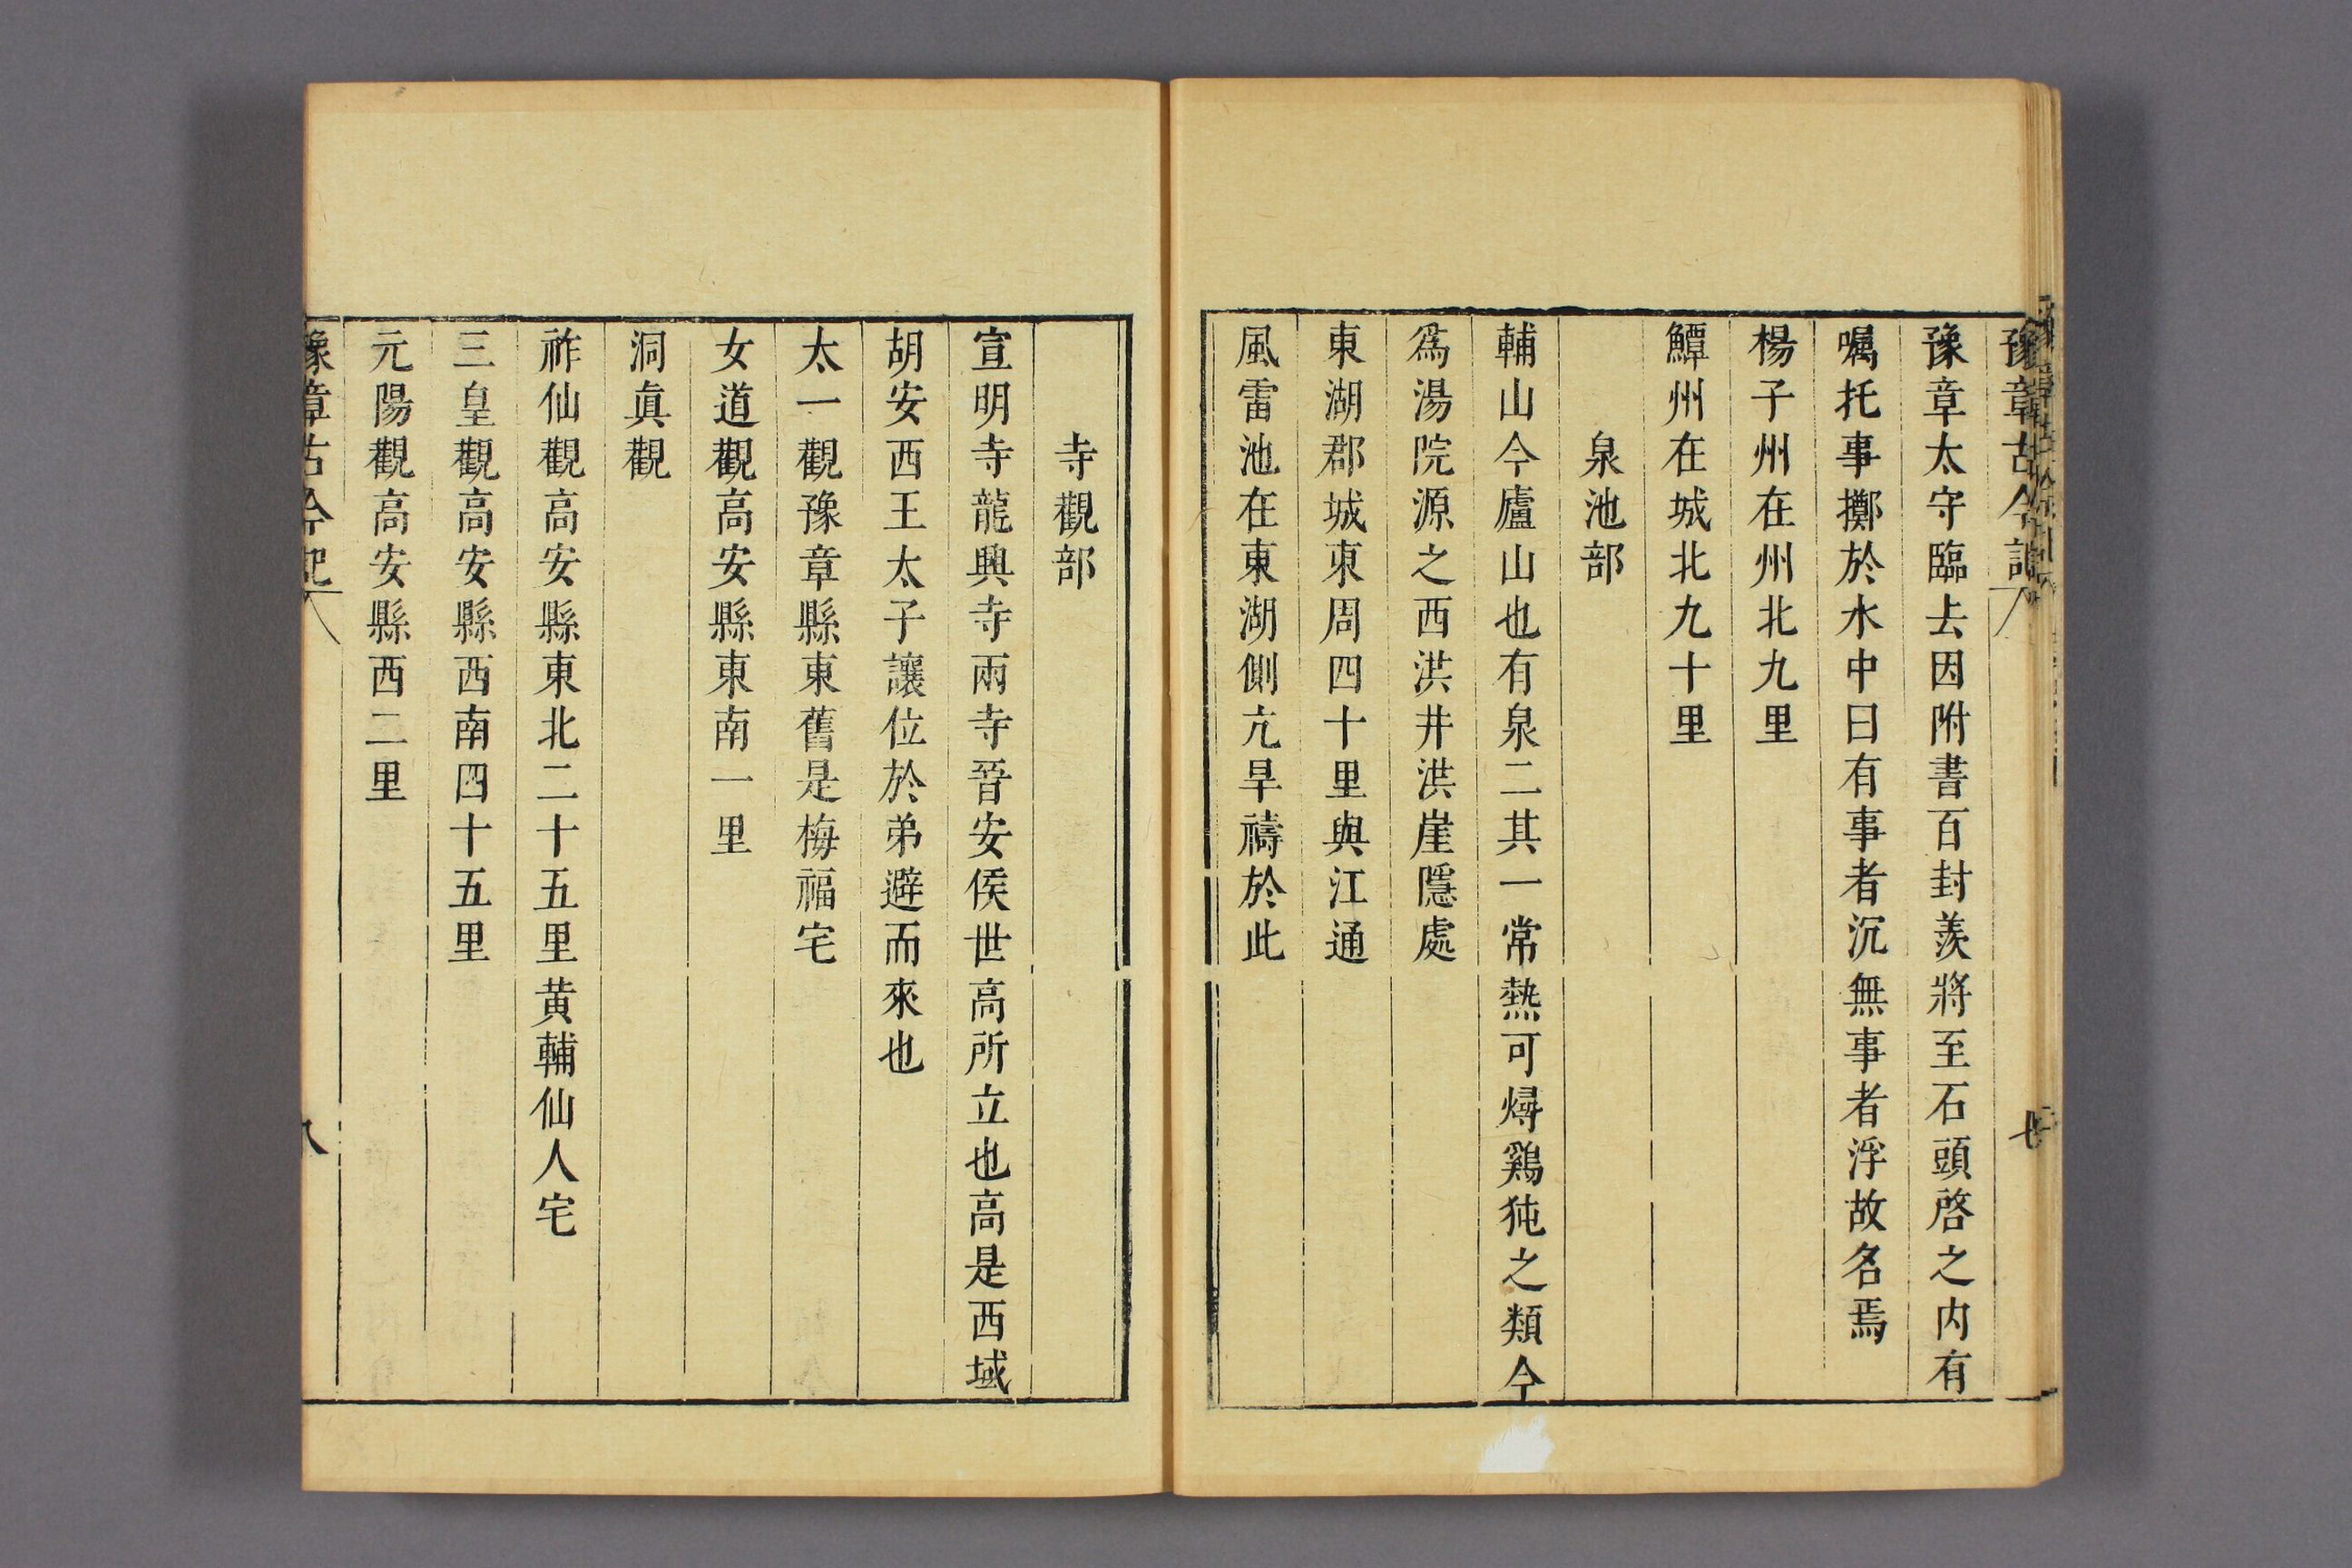 豫章古今記
七
豫章太守臨去因附書百封羨將至石頭啓之内有
囑托事擲於水中曰有事者沉無事者浮故名焉
楊子州在州北九里
鱏州在城北九十里
泉池部
輔山今廬山也有泉二其一常熱可燖鷄㹠之類今
爲湯院源之西洪井洪崖隱處
東湖郡城東周四十里與江通
風雷池在東湖側亢旱禱於此
寺觀部
宣明寺龍興寺兩寺晉安侯世高所立也高是西域
胡安西王太子讓位於弟避而來也
太一觀豫章縣東舊是梅福宅
女道觀高安縣東南一里
洞眞觀
祚仙觀高安縣東北二十五里黄輔仙人宅
三皇觀高安縣西南四十五里
元陽觀高安縣西二里
豫章古今記
八